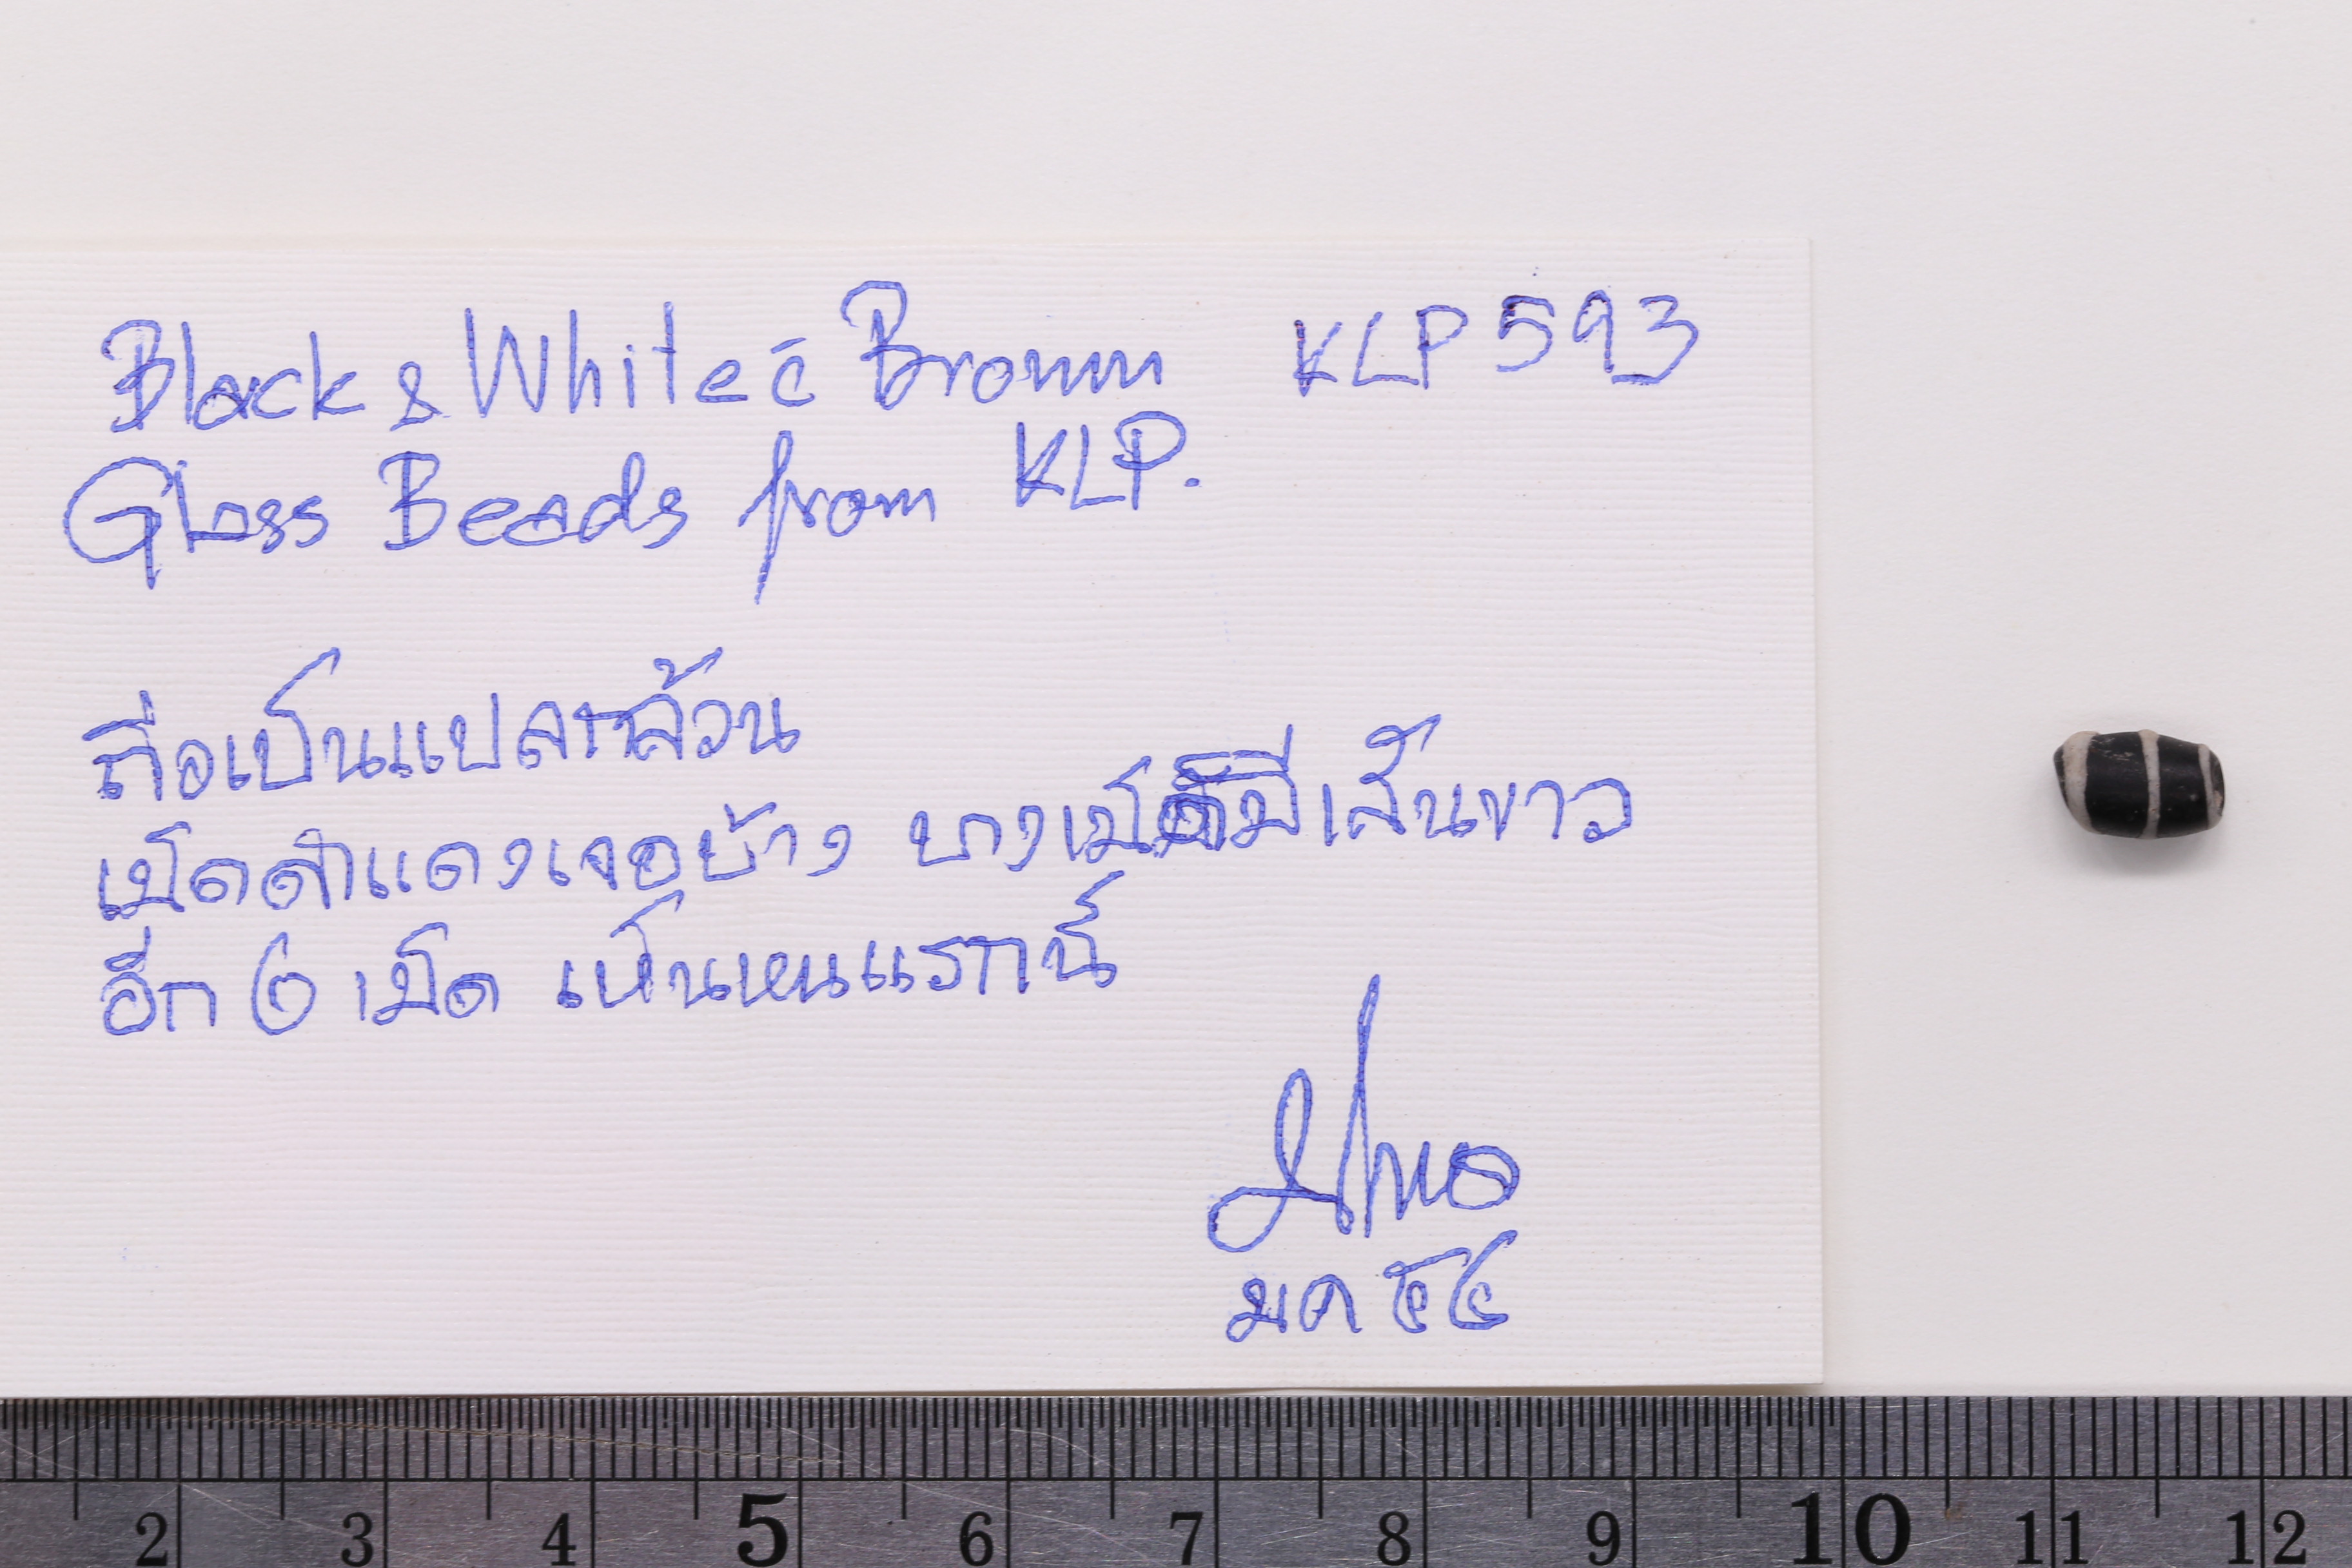 Black & White c̄ Brown KLP593
Glass Beads from KLP.
ถือเป็นแปลกล้วน
เม็ดดำแดงเจอบ้าง บางเม็ดมีเส้นขาว
อีก 6 เม็ด เห็นหนแรกนี้
มค ๕๔
2 3 4 5 6 7 8 9 10 11 12